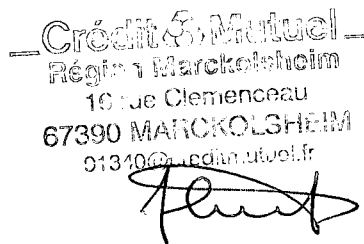 Crédit Mutuel
Région Marckolsheim
16 rue Clemenceau
67390 MARCKOLSHEIM
01340@creditmutuel.fr